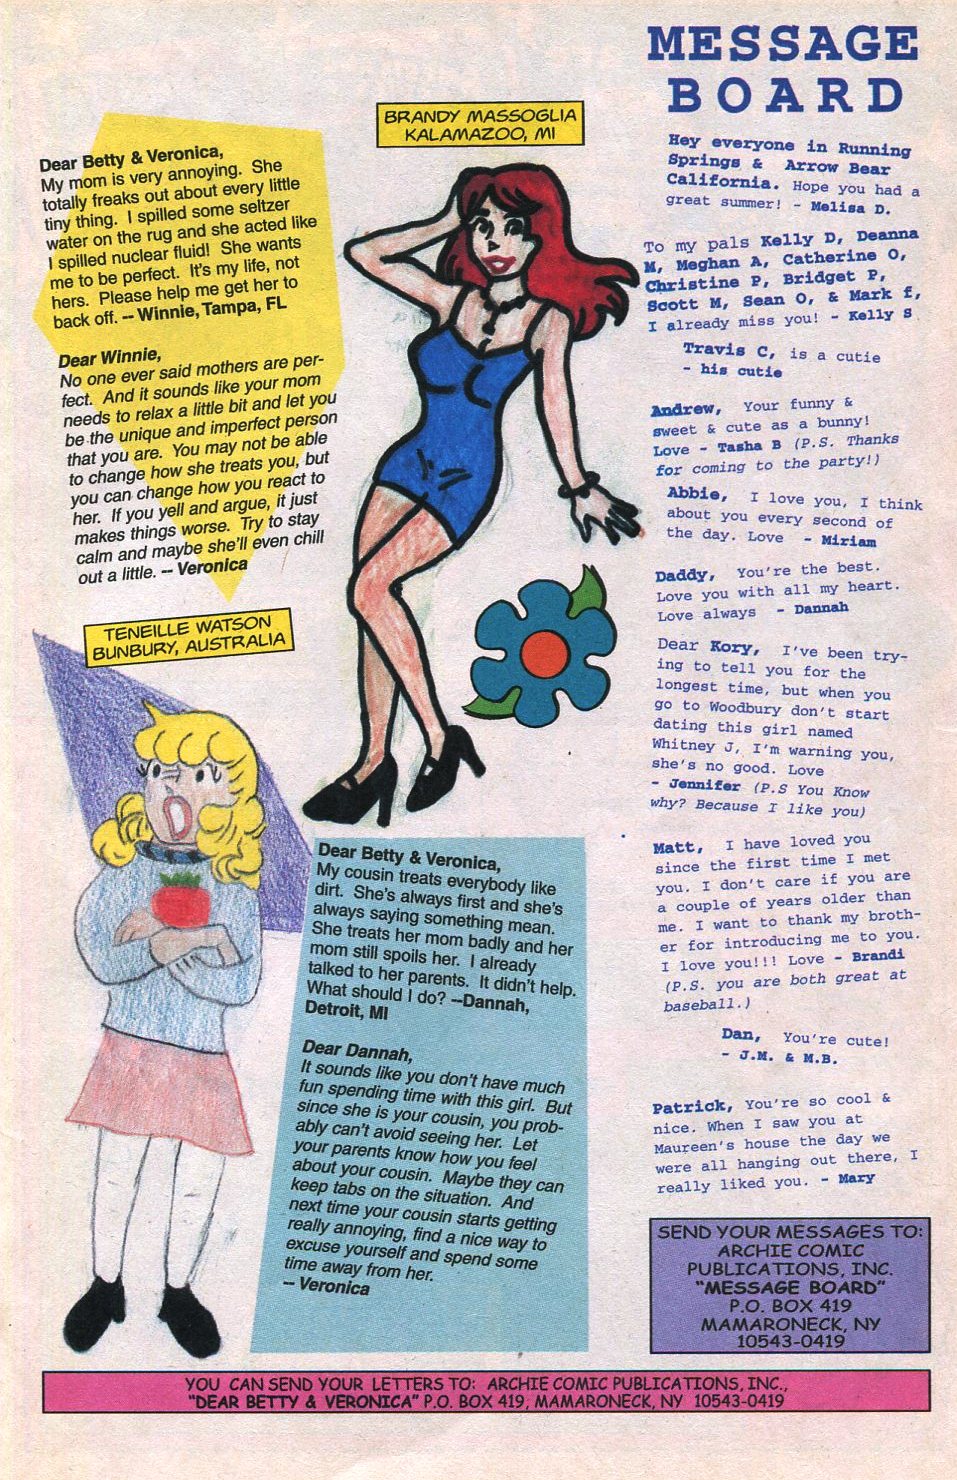 MESSAGE
BOARD
BRANDY MASSOGLIA
KALAMAZOO, MI
Dear Betty & Veronica,
My mom is very annoying. She
totally freaks out about every little
tiny thing. I spilled some seltzer
water on the rug and she acted like
I spilled nuclear fluid! She wants
me to be perfect. It's my life, not
hers. Please help me get her to
back off. -- Winnie, Tampa, FL
Dear Winnie,
No one ever said mothers are per-
fect. And it sounds like your mom
needs to relax a little bit and let you
be the unique and imperfect person
that you are. You may not be able
to change how she treats you, but
you can change how you react to
her. If you yell and argue, it just
makes things worse. Try to stay
calm and maybe she'll even chill
out a little. -- Veronica
TENEILLE WATSON
BUNBURY, AUSTRALIA
Dear Betty & Veronica,
My cousin treats everybody like
dirt. She's always first and she's
always saying something mean.
She treats her mom badly and her
mom still spoils her. I already
talked to her parents. It didn't help.
What should I do? --Dannah,
Detroit, MI
Dear Dannah,
It sounds like you don't have much
fun spending time with this girl. But
since she is your cousin, you prob-
ably can't avoid seeing her. Let
your parents know how you feel
about your cousin. Maybe they can
keep tabs on the situation. And
next time your cousin starts getting
really annoying, find a nice way to
excuse yourself and spend some
time away from her.
-- Veronica
Hey everyone in Running
Springs & Arrow Bear
California. Hope you had a
great summer! - Melisa D.
To my pals Kelly D, Deanna
M, Meghan A, Catherine O,
Christine P, Bridget P,
Scott M, Sean O, & Mark f,
I already miss you! - Kelly S
Travis C, is a cutie
- his cutie
Andrew, Your funny &
sweet & cute as a bunny!
Love - Tasha B (P.S. Thanks
for coming to the party!)
Abbie, I love you, I think
about you every second of
the day. Love - Miriam
Daddy, You're the best.
Love you with all my heart.
Love always - Dannah
Dear Kory, I've been try-
ing to tell you for the
longest time, but when you
go to Woodbury don't start
dating this girl named
Whitney J, I'm warning you,
she's no good. Love
- Jennifer (P.S You Know
why? Because I like you)
Matt, I have loved you
since the first time I met
you. I don't care if you are
a couple of years older than
me. I want to thank my broth-
er for introducing me to you.
I love you!!! Love - Brandi
(P.S. you are both great at
baseball.)
Dan, You're cute!
- J.M. & M.B.
Patrick, You're so cool &
nice. When I saw you at
Maureen's house the day we
were all hanging out there, I
really liked you. - Mary
SEND YOUR MESSAGES TO:
ARCHIE COMIC
PUBLICATIONS, INC.
"MESSAGE BOARD"
P.O. BOX 419
MAMARONECK, NY
10543-0419
YOU CAN SEND YOUR LETTERS TO: ARCHIE COMIC PUBLICATIONS, INC.,
"DEAR BETTY & VERONICA" P.O. BOX 419, MAMARONECK, NY 10543-0419